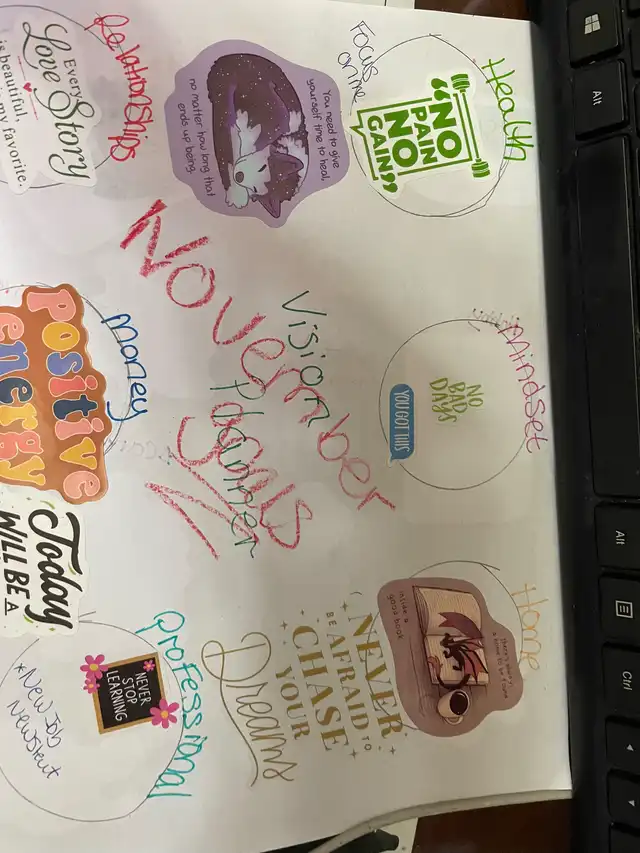 Alt
Alt
Ctrl
Health
"NO
PAIN
NO
GAIN"
Focus
on me
Mindset
NO
BAD
DAYS
YOU GOT THIS
Home
inside a
good book
NEVER
BE AFRAID TO
CHASE
YOUR
Dreams
You need to give
yourself time to heal,
no matter how long that
ends up being.
Vision
Planner
November
goals
Relationships
Every
Love Story
is beautiful,
is my favorite.
Money
Positive
energy
Today
WILL BE A
Professional
NEVER
STOP
LEARNING
*New Job
New Start